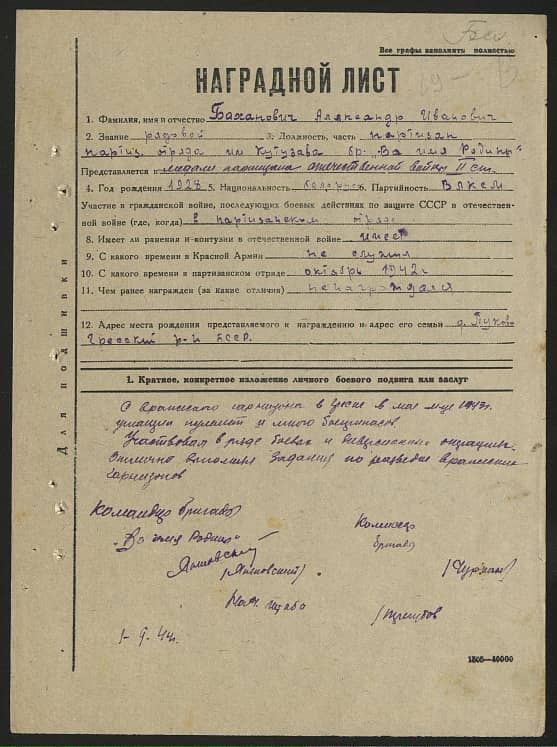 Все графы заполнять полностью
НАГРАДНОЙ ЛИСТ
1. Фамилия, имя и отчество Баханович Александр Иванович
2. Звание рядовой 3. Должность, часть партизан
партиз. отряда им Кутузова бр. „Во имя Родины"
Представляется к медали партизана отечественной войны II ст.
4. Год рождения 1928 5. Национальность белорус 6. Партийность ВЛКСМ
Участие в гражданской войне, последующих боевых действиях по защите СССР в отечествен-
ной войне (где, когда) в партизанском отряде
8. Имеет ли ранения и контузии в отечественной войне имеет
9. С какого времени в Красной Армии не служил
10. С какого времени в партизанском отряде октябрь 1942г
11. Чем ранее награжден (за какие отличия) не награждался
12. Адрес места рождения представляемого к награждению и адрес его семьи д. Пуково
Гресский р-н БССР.
1. Краткое, конкретное изложение личного боевого подвига или заслуг
С вражеского гарнизона в в мае м-це 1943г.
пулемет и много боеприпасов.
Участвовал в ряде боевых и операциях.
Отлично выполнял задания по разведке вражеских
гарнизонов
Командир бригады
„Во имя Родины"
Комиссар
бригады
Нач. штаба
44г.
Для подшивки
1505—40000